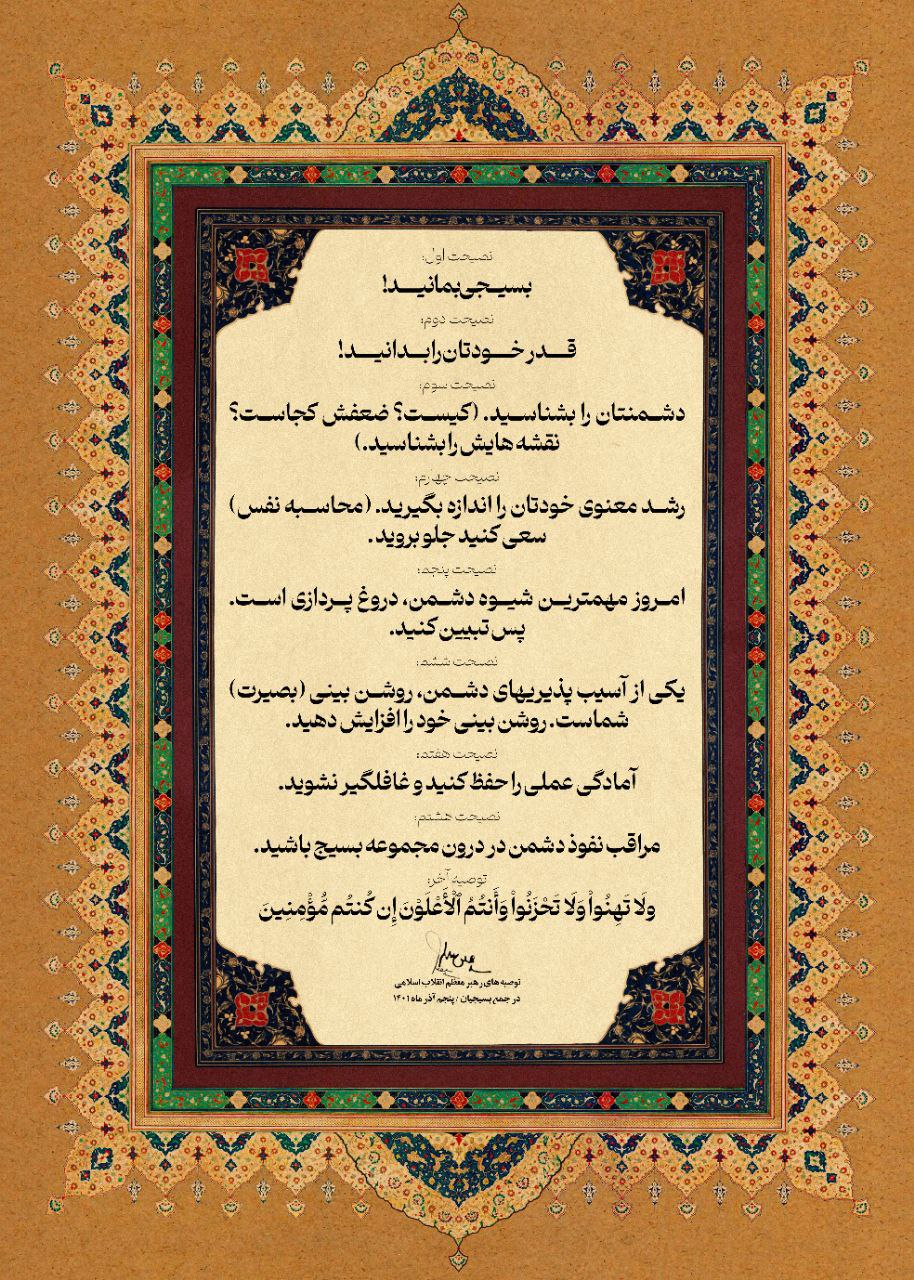 نصیحت اول:
بسیجی بمانید!
نصیحت دوم:
قدر خودتان را بدانید!
نصیحت سوم:
دشمنتان را بشناسید. (کیست؟ ضعفش کجاست؟
نقشه هایش را بشناسید.)
نصیحت چهارم:
رشد معنوی خودتان را اندازه بگیرید. (محاسبه نفس)
سعی کنید جلو بروید.
نصیحت پنجم:
امروز مهمترین شیوه دشمن، دروغ پردازی است.
پس تبیین کنید.
نصیحت ششم:
یکی از آسیب پذیریهای دشمن، روشن بینی (بصیرت)
شماست. روشن بینی خود را افزایش دهید.
نصیحت هفتم:
آمادگی عملی را حفظ کنید و غافلگیر نشوید.
نصیحت هشتم:
مراقب نفوذ دشمن در درون مجموعه بسیج باشید.
توصیه آخر:
وَلَا تَهِنُوا۟ وَلَا تَحْزَنُوا۟ وَأَنتُمُ ٱلْأَعْلَوْنَ إِن كُنتُم مُّؤْمِنِينَ
توصیه های رهبر معظم انقلاب اسلامی
در جمع بسیجیان / پنجم آذر ماه ۱۴۰۱